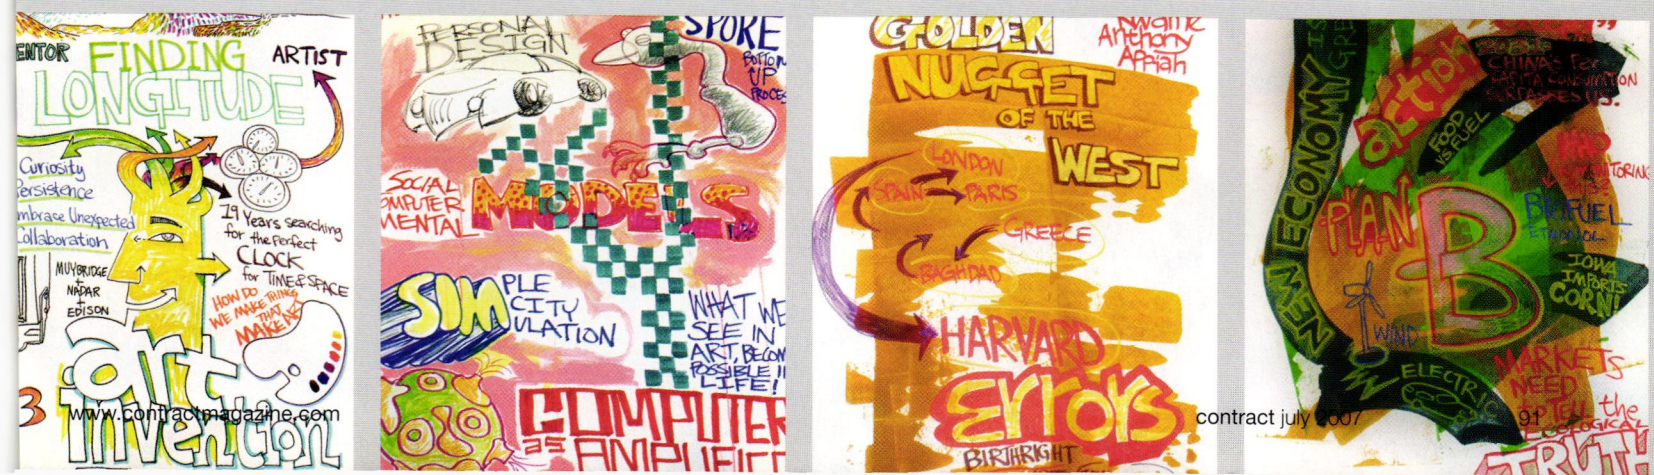 ENTOR
FINDING
ARTIST
LONGITUDE
Curiosity
Persistence
mbrace Unexpected
Collaboration
19 Years searching
for the Perfect
CLOCK
for TIME & SPACE
MUYBRIDGE
+
NADAR
+
EDISON
HOW DO
WE MAKE THINGS
THAT
MAKE
art
invention
3
www.contractmagazine.com
PERSONAL
DESIGN
SPOKE
BOTTOM
UP
PROCES
SOCIAL
OMPUTER
MENTAL
MODELS
4
SIMPLE
CITY
ULATION
WHAT WE
SEE IN
ART, BECOM
POSSIBLE I
LIFE!
COMPUTER
as AMPLIFI
GOLDEN
Kwame
Anthony
Appiah
NUGGET
OF THE
WEST
LONDON
SPAIN
PARIS
GREECE
BAGHDAD
HARVARD
Errors
BIRTHRIGHT
contract july 2007
NEW ECONOMY IS
action
CHINA'S Per
CAPITA CONSUMPTION
SURPASSES U.S.
FOOD
VS FUEL
WHO
PLAN B
BIOFUEL
ETHANOL
IOWA
IMPORTS
CORN!
WIND
ELECTRIC
MARKETS
NEED
TO TELL the
ECOLOGICAL
TRUTH
91